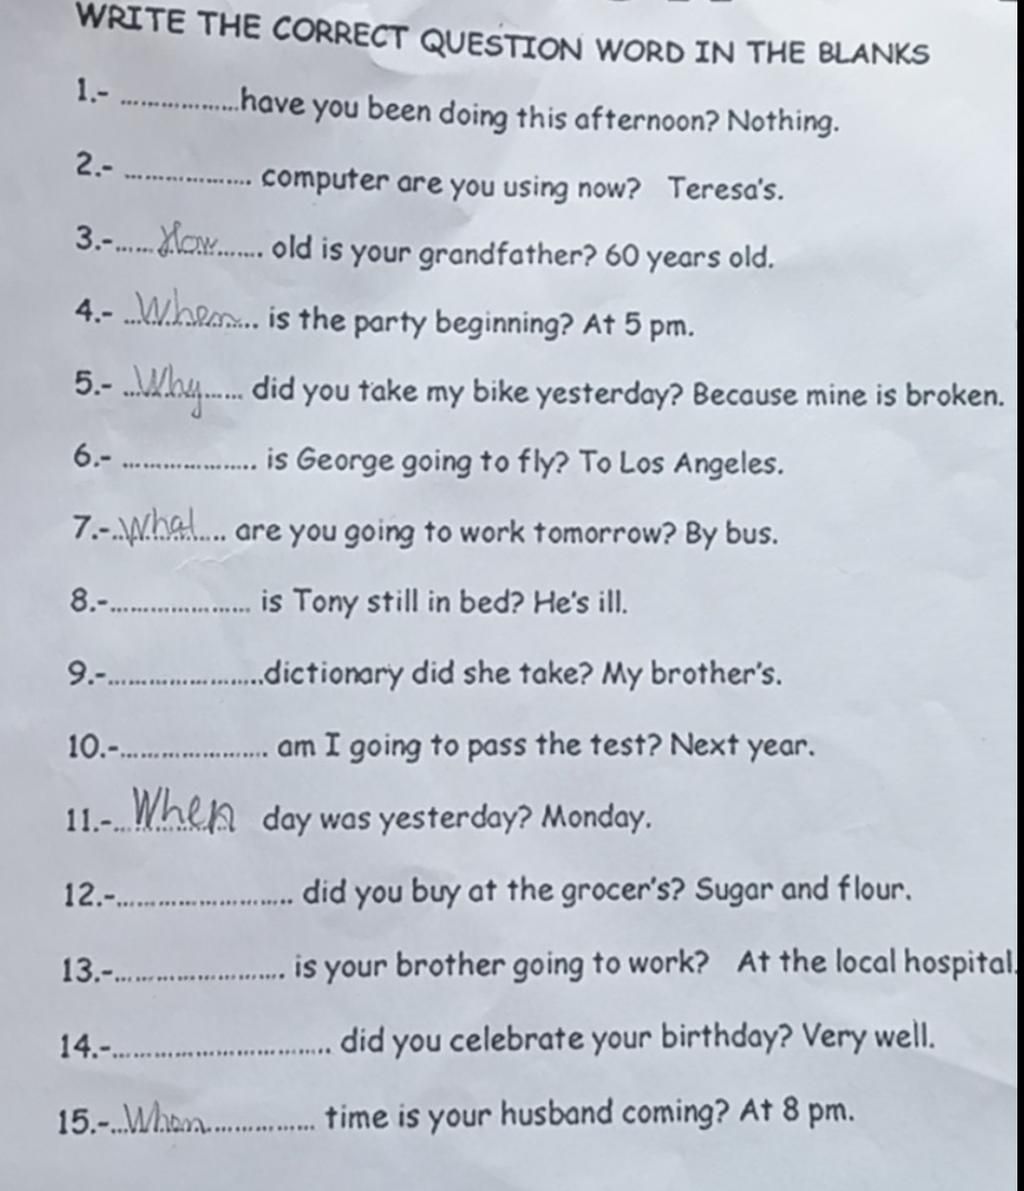 WRITE THE CORRECT QUESTION WORD IN THE BLANKS
1.- ..................have you been doing this afternoon? Nothing.
2.- .................. computer are you using now? Teresa's.
3.-......How....... old is your grandfather? 60 years old.
4.- ...When... is the party beginning? At 5 pm.
5.- ...Why...... did you take my bike yesterday? Because mine is broken.
6.- ................... is George going to fly? To Los Angeles.
7.-..What.... are you going to work tomorrow? By bus.
8.-.................... is Tony still in bed? He's ill.
9.-......................dictionary did she take? My brother's.
10.-..................... am I going to pass the test? Next year.
11.-..When day was yesterday? Monday.
12.-......................... did you buy at the grocer's? Sugar and flour.
13.-........................ is your brother going to work? At the local hospital.
14.-............................... did you celebrate your birthday? Very well.
15.-..When............... time is your husband coming? At 8 pm.